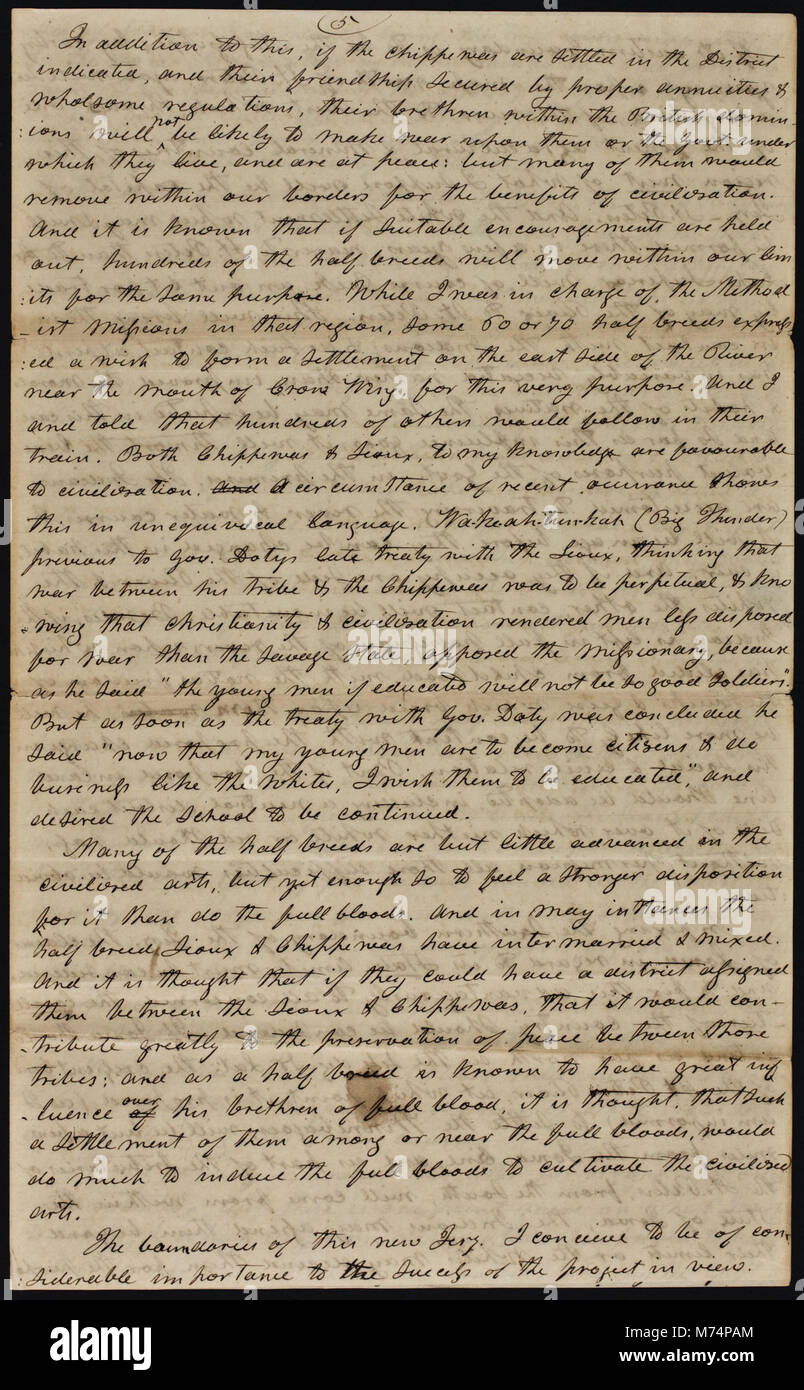 5
In addition to this, if the Chippewas are settled in the District
indicated, and their friendship secured by proper annuities &
wholsome regulations, their brethren within the British domin-
:ions will not be likely to make war upon them or the Govt. under
which they live, and are at peace: but many of them would
remove within our borders for the benefits of civilization.
And it is known that if suitable encouragements are held
out, hundreds of the half breeds will move within our lim
:its for the same purpose. While I was in charge of the Method
-ist Missions in that region, some 60 or 70 half breeds express
:ed a wish to form a settlement on the east side of the River
near the mouth of Crow Wing, for this very purpose. And I
and told that hundreds of others would follow in their
train. Both Chippewas & Sioux, to my knowledge are favourable
to civilization. And A circumstance of recent occurance shows
this in unequivocal language. Wa-ke-ah-tun-kah (Big Thunder)
previous to Gov. Dotys late treaty with the Sioux, thinking that
war between his tribe & the Chippewas was to be perpetual, & kno
-wing that christianity & civilization rendered men less disposed
for war than the savage state opposed the missionary, because
as he said "the young men if educated will not be so good soldiers".
But as soon as the treaty with Gov. Doty was concluded he
said "now that my young men are to become citizens & do
business like the whites, I wish them to be educated", and
desired the school to be continued.
Many of the half breeds are but little advanced in the
civilized arts, but yet enough so to feel a stronger disposition
for it than do the full bloods. And in may instances the
half breed Sioux & Chippewas have intermarried & mixed.
And it is thought that if they could have a district assigned
them between the Sioux & Chippewas, that it would con-
-tribute greatly to the preservation of peace between those
tribes: and as a half breed is known to have great inf
-luence of over his brethren of full blood, it is thought, that such
a settlement of them among or near the full bloods, would
do much to induce the full bloods to cultivate the civilized
arts.
The boundaries of this new Tery. I concieve to be of con-
:siderable importance to the success of the project in view.
alamy stock photo
M74PAM